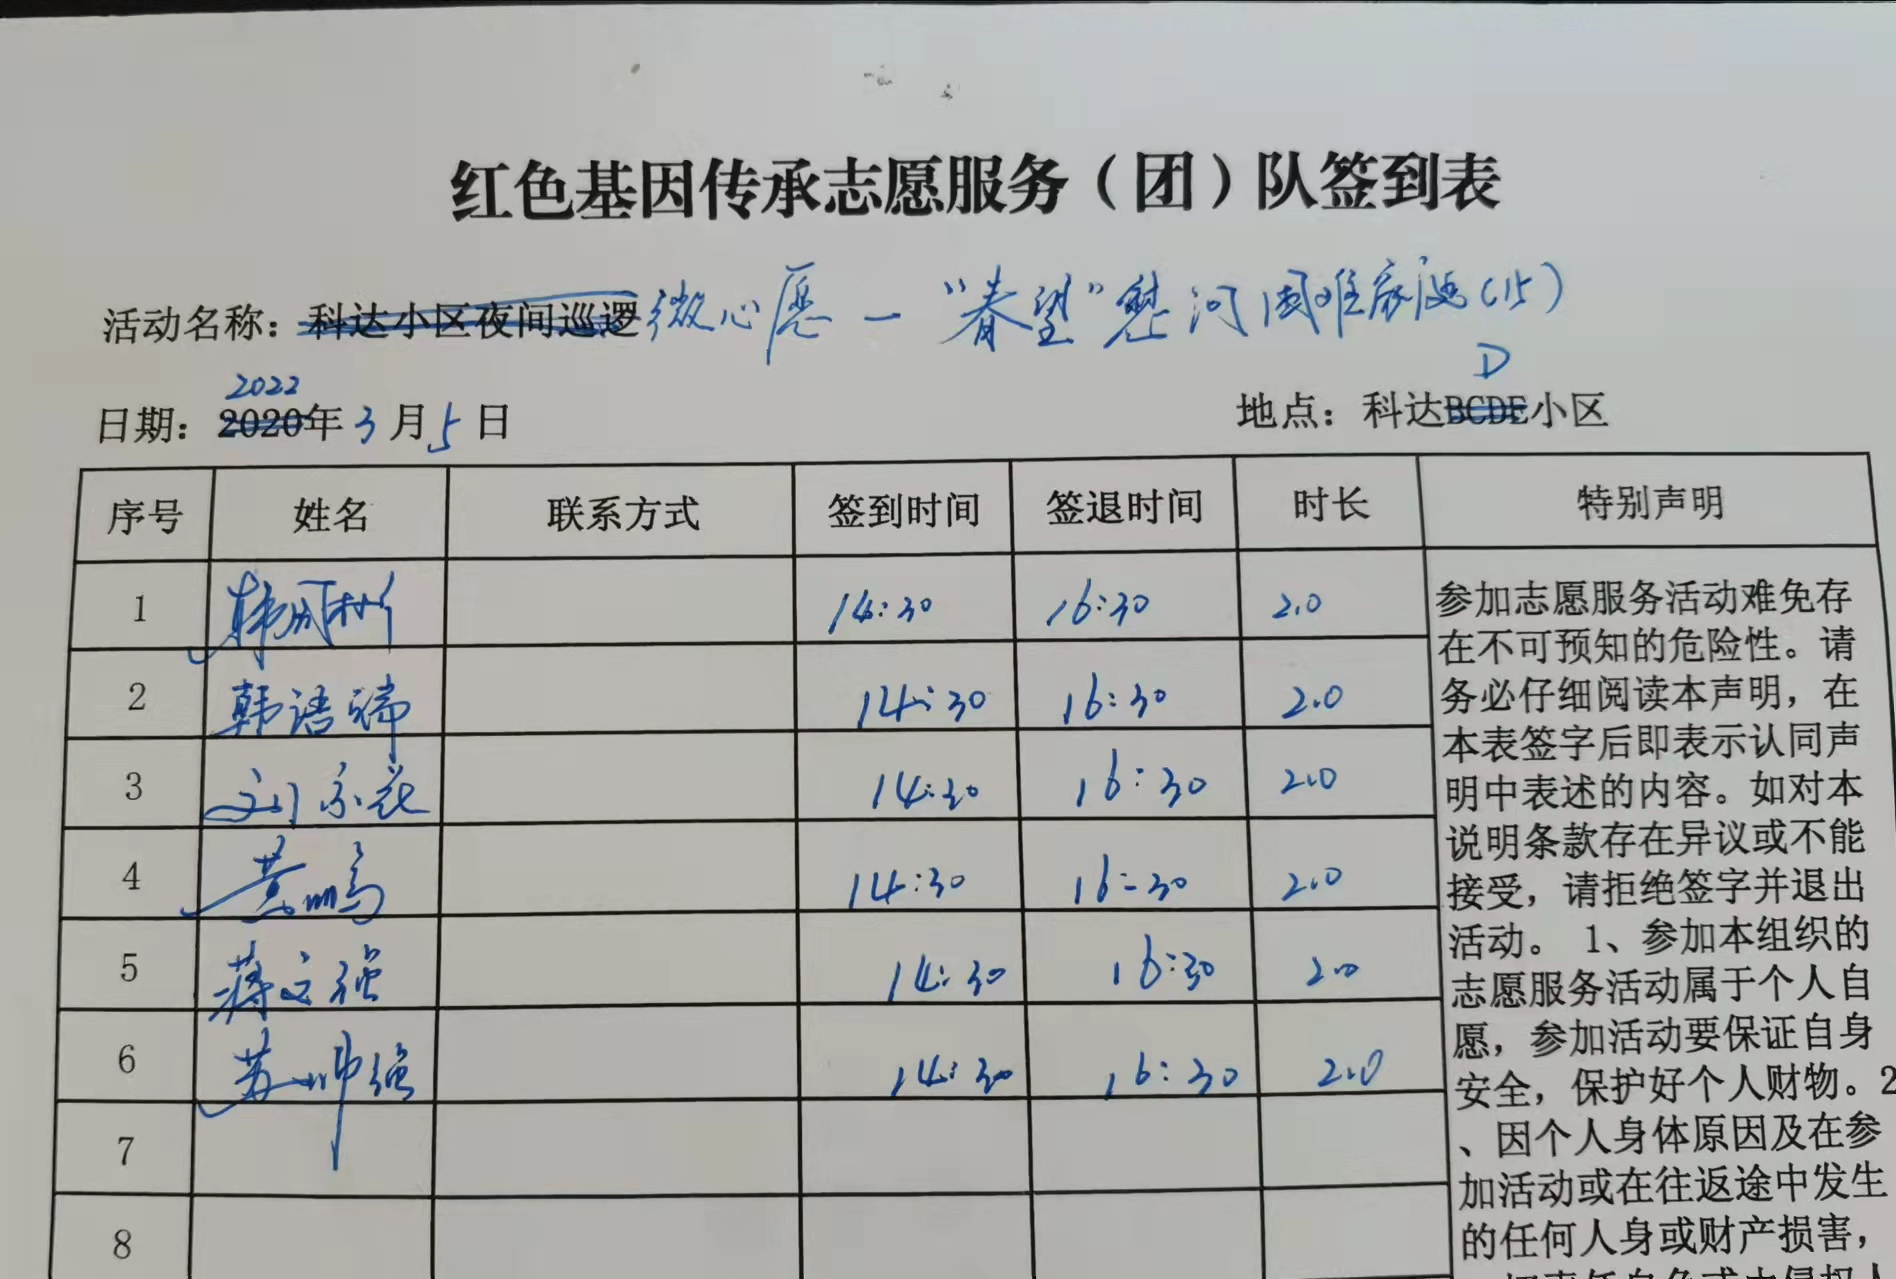 红色基因传承志愿服务（团）队签到表
活动名称：科达小区夜间巡逻微心愿一“春望”慰问困难家庭(15)
2022
D
日期：2020年3月5日
地点：科达BCDE小区
序号 姓名 联系方式 签到时间 签退时间 时长 特别声明
1 韩 14:30 16:30 2.0
2 韩语端 14:30 16:30 2.0
3 刘 花 14:30 16:30 2.0
4 黄鹏 14:30 16:30 2.0
5 蒋文强 14:30 16:30 2.0
6 苏帅强 14:30 16:30 2.0
7
8
参加志愿服务活动难免存
在不可预知的危险性。请
务必仔细阅读本声明，在
本表签字后即表示认同声
明中表述的内容。如对本
说明条款存在异议或不能
接受，请拒绝签字并退出
活动。 1、参加本组织的
志愿服务活动属于个人自
愿，参加活动要保证自身
安全，保护好个人财物。2
、因个人身体原因及在参
加活动或在往返途中发生
的任何人身或财产损害，